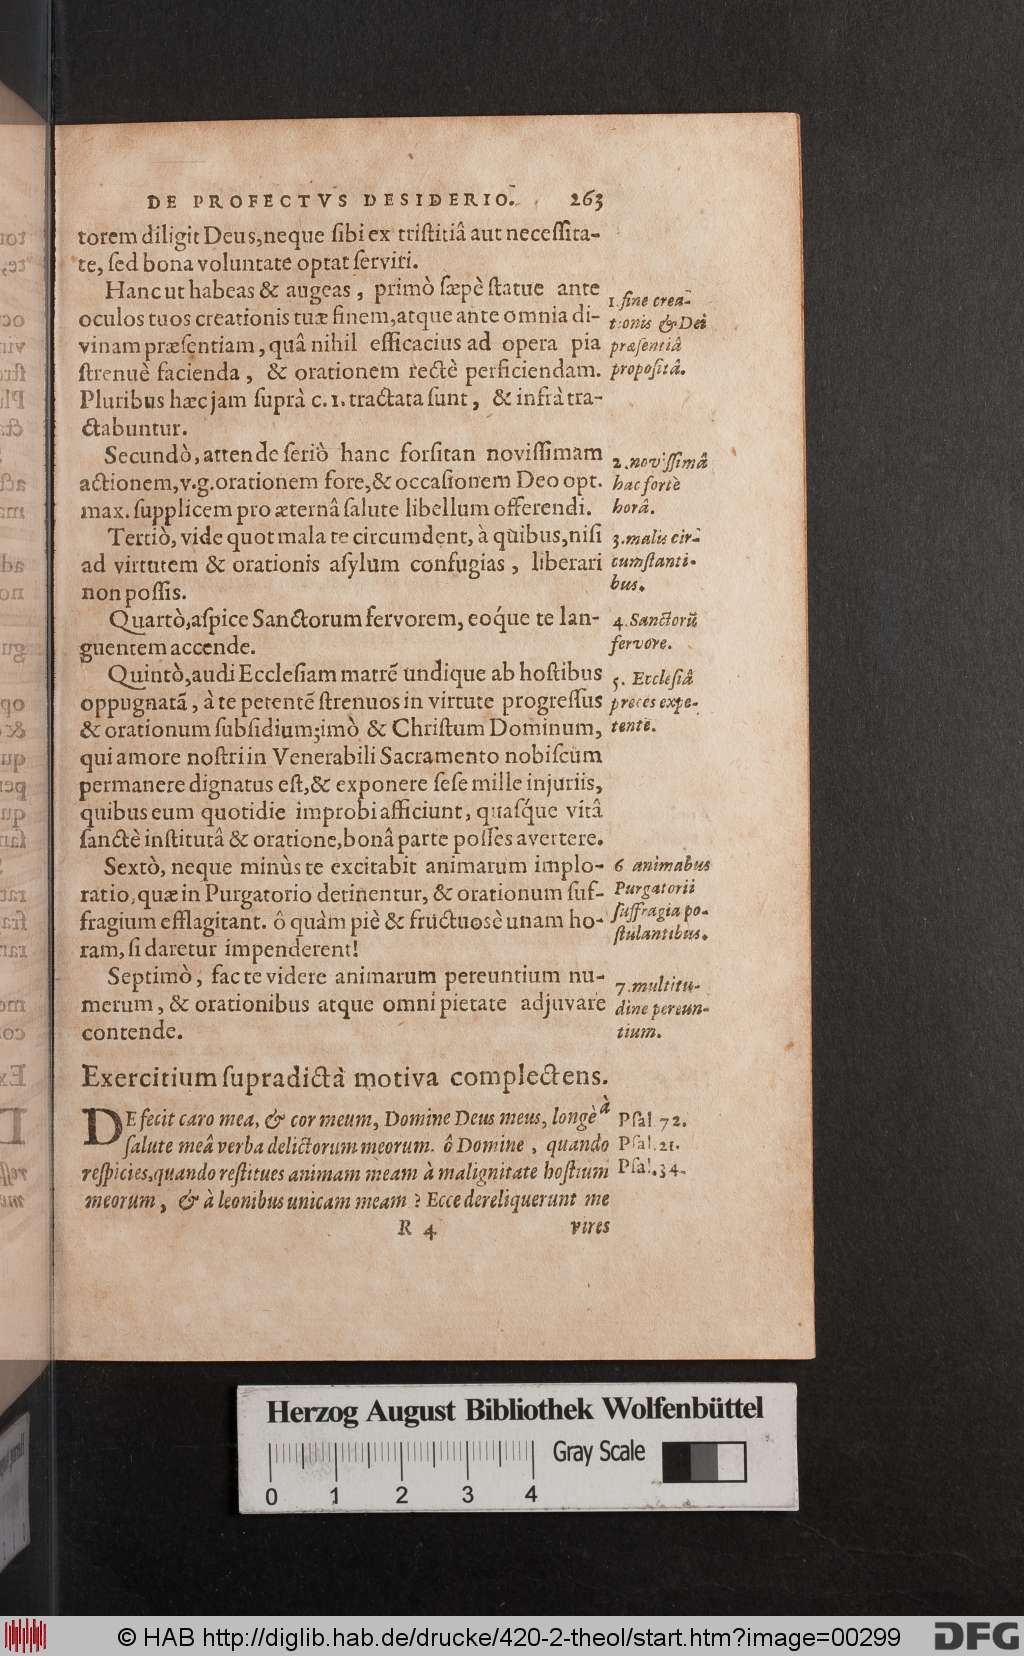 DE PROFECTVS DESIDERIO. 263
torem diligit Deus, neque ſibi ex triſtitiâ aut neceſſita-
te, ſed bona voluntate optat ſerviri.
Hanc ut habeas & augeas, primò ſæpè ſtatue ante
oculos tuos creationis tuæ finem, atque ante omnia di-
vinam præſentiam, quâ nihil efficacius ad opera pia
ſtrenuè facienda, & orationem rectè perficiendam.
Pluribus hæc jam ſuprà c. 1. tractata ſunt, & infrà tra-
ctabuntur.
1. fine crea-
tionis & Dei
præſentiâ
propoſitâ.
Secundò, attende ſeriò hanc forſitan noviſſimam
actionem, v.g. orationem fore, & occaſionem Deo opt.
max. ſupplicem pro æternâ ſalute libellum offerendi.
2. noviſſimâ
hac fortè
horâ.
Tertiò, vide quot mala te circumdent, à quibus, niſi
ad virtutem & orationis aſylum confugias, liberari
non poſſis.
3. malis cir-
cumſtanti-
bus.
Quartò, aſpice Sanctorum fervorem, eoq́ue te lan-
guentem accende.
4. Sanctorũ
fervore.
Quintò, audi Eccleſiam matrẽ undique ab hoſtibus
oppugnatã, à te petentẽ ſtrenuos in virtute progreſſus
& orationum ſubſidium; imò & Chriſtum Dominum,
qui amore noſtri in Venerabili Sacramento nobiſcum
permanere dignatus eſt, & exponere ſeſe mille injuriis,
quibus eum quotidie improbi afficiunt, quaſq́ue vitâ
ſanctè inſtitutâ & oratione, bonâ parte poſſes avertere.
5. Eccleſiâ
preces expe-
tente.
Sextò, neque minùs te excitabit animarum implo-
ratio, quæ in Purgatorio detinentur, & orationum ſuf-
fragium efflagitant. ô quàm piè & fructuosè unam ho-
ram, ſi daretur impenderent!
6 animabus
Purgatorii
ſuffragia po-
ſtulantibus.
Septimò, fac te videre animarum pereuntium nu-
merum, & orationibus atque omni pietate adjuvare
contende.
7. multitu-
dine pereun-
tium.
Exercitium ſupradictà motiva complectens.
DEfecit caro mea, & cor meum, Domine Deus meus, longè à
ſalute meâ verba delictorum meorum. ô Domine, quando
reſpicies, quando reſtitues animam meam à malignitate hoſtium
meorum, & à leonibus unicam meam? Ecce dereliquerunt me
Pſal. 72.
Pſal. 21.
Pſal. 34.
R 4 vires
Herzog August Bibliothek Wolfenbüttel
Gray Scale
0 1 2 3 4
© HAB http://diglib.hab.de/drucke/420-2-theol/start.htm?image=00299
DFG